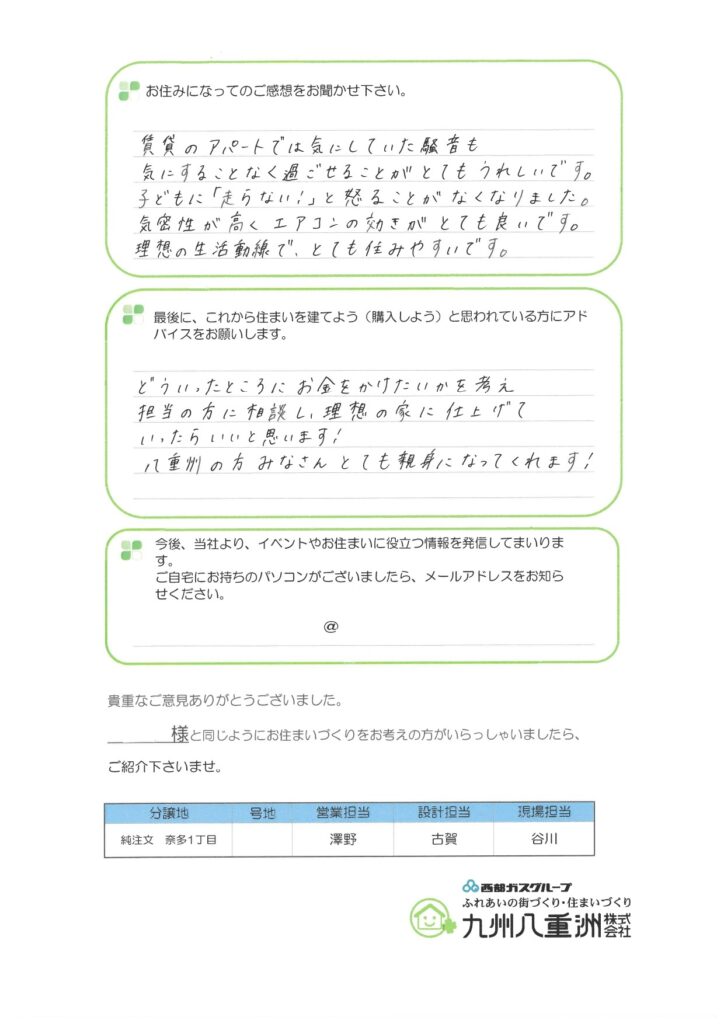 お住みになってのご感想をお聞かせ下さい。
賃貸のアパートでは気にしていた騒音も
気にすることなく過ごせることがとてもうれしいです。
子どもに「走らない!」と怒ることがなくなりました。
気密性が高くエアコンの効きがとても良いです。
理想の生活動線で、とても住みやすいです。
最後に、これから住まいを建てよう（購入しよう）と思われている方にアド
バイスをお願いします。
どういったところにお金をかけたいかを考え
担当の方に相談し、理想の家に仕上げて
いったらいいと思います!
八重州の方みなさんとても親身になってくれます!
今後、当社より、イベントやお住まいに役立つ情報を発信してまいりま
す。
ご自宅にお持ちのパソコンがございましたら、メールアドレスをお知ら
せください。
@
貴重なご意見ありがとうございました。
様と同じようにお住まいづくりをお考えの方がいらっしゃいましたら、
ご紹介下さいませ。
分譲地 号地 営業担当 設計担当 現場担当
純注文 奈多1丁目 澤野 古賀 谷川
西部ガスグループ
ふれあいの街づくり・住まいづくり
九州八重洲株式会社